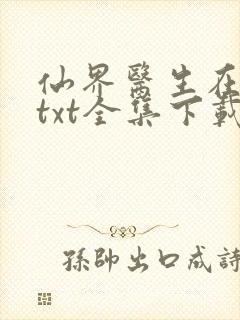 仙界醫生在
txt全集下載
孫帥出口成詩